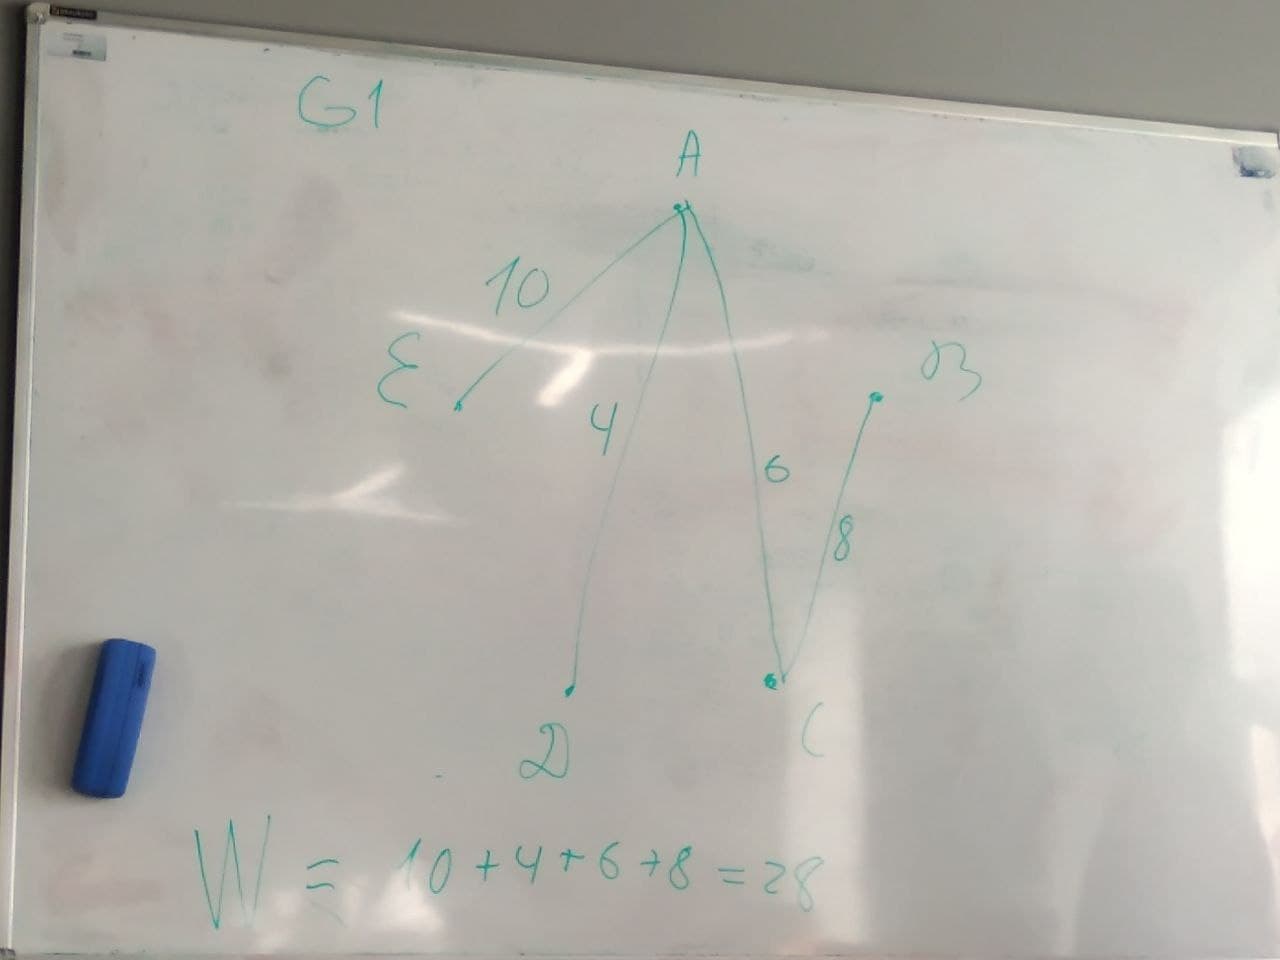 G1
A
10
E
B
4
6
8
D
C
W = 10 + 4 + 6 + 8 = 28